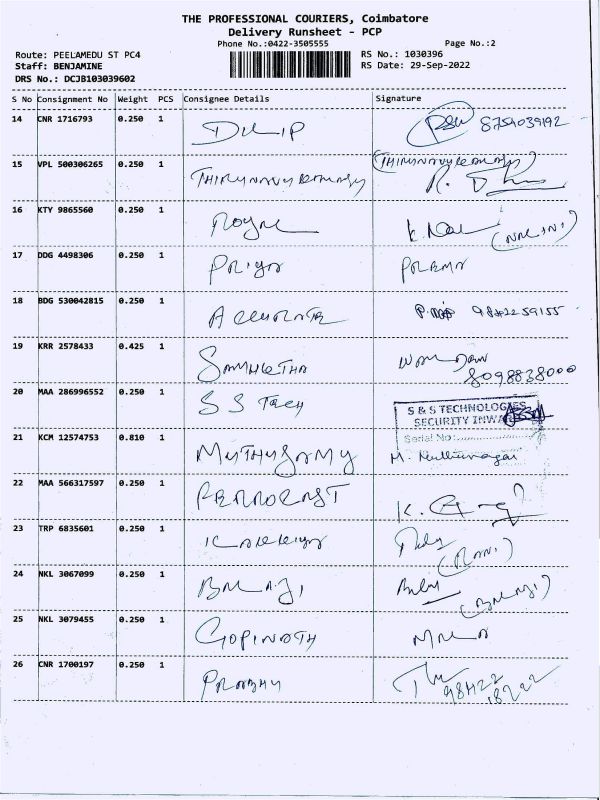 THE PROFESSIONAL COURIERS, Coimbatore
Delivery Runsheet - PCP
Phone No.:0422-3505555
Page No.:2
Route: PEELAMEDU ST PC4
RS No.: 1030396
Staff: BENJAMINE
RS Date: 29-Sep-2022
DRS No.: DCJB103039602
S No Consignment No Weight PCS Consignee Details Signature
14 CNR 1716793 0.250 1 DILIP 8754039192
15 VPL 500306265 0.250 1 THIRUNAVUKARASU (THIRUNAVUKARASU)
16 KTY 9865560 0.250 1 (NALINI)
17 DDG 4498306 0.250 1 PRIYA PREMA
18 BDG 530042815 0.250 1 ACCURATE 9842259155
19 KRR 2578433 0.425 1 SAMHETHA
8098838000
20 MAA 286996552 0.250 1 S S Tech
S & S TECHNOLOGIES
SECURITY INWARD
Serial No:
21 KCM 12574753 0.810 1 MUTHUSAMY M.
22 MAA 566317597 0.250 1 K.
23 TRP 6835601 0.250 1 (RANI)
24 NKL 3067099 0.250 1 BALAJI (BALAJI)
25 NKL 3079455 0.250 1 GOPINATH MALA
26 CNR 1700197 0.250 1 PRABHU
98422
18222